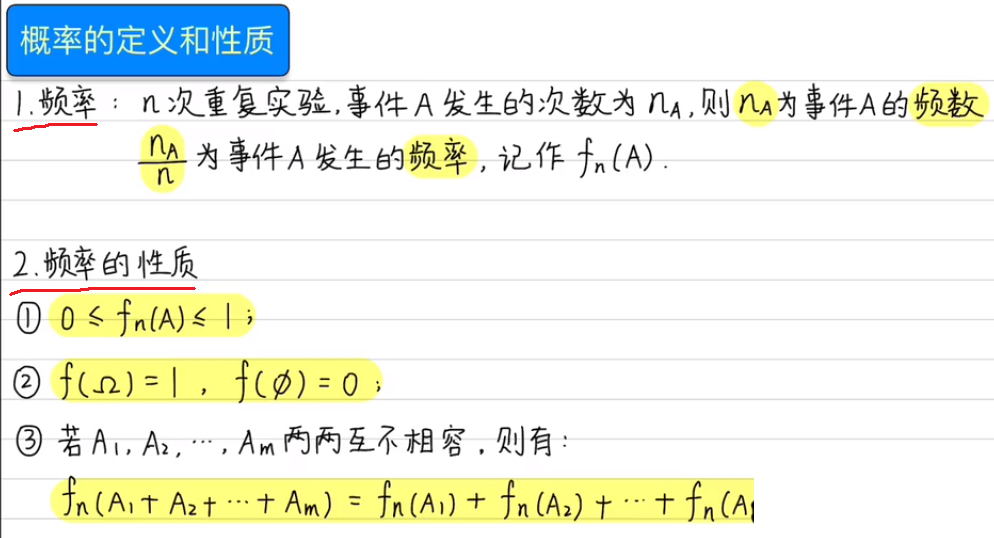 概率的定义和性质
1.频率：n次重复实验,事件A发生的次数为n_A,则n_A为事件A的频数
n_A/n 为事件A发生的频率,记作 f_n(A).
2.频率的性质
① 0≤f_n(A)≤1;
② f(Ω)=1, f(φ)=0;
③ 若A₁,A₂,…,Aₘ两两互不相容,则有:
f_n(A₁+A₂+…+Aₘ)=f_n(A₁)+f_n(A₂)+…+f_n(A